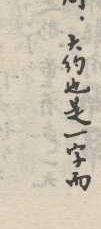 大約也是一字而